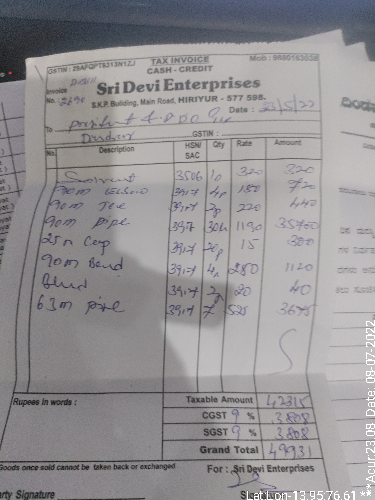 GSTIN : 29AFQPT6313N1ZJ TAX INVOICE Mob : 9880163038
CASH - CREDIT
Invoice
No. : 2690
Sri Devi Enterprises
S.K.P. Building, Main Road, HIRIYUR - 577 598.
Date : 23/5/22
To president & PDO
GSTIN :
No. Description HSN/SAC Qty Rate Amount
Solvent 3506 10 320 320
90m 3917 4p 180 720
90m Tee 3917 2p 220 440
90m pipe 3917 30L 1190 35700
25m Cap 3917 20p 15 300
90m Bend 3917 4p 280 1120
Bend 3917 2p 20 40
63m pipe 3917 7 525 3675
Rupees in words :
Taxable Amount 42315
CGST 9 % 3808
SGST 9 % 3808
Grand Total 49931
Goods once sold cannot be taken back or exchanged
For : Sri Devi Enterprises
rty Signature
Lat Lon-13.9576,61
***Acur:23.08 Date: 08-07-2022